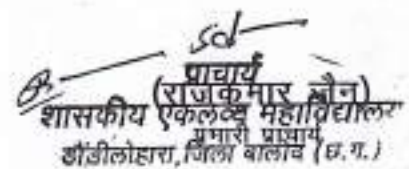 sd/-
प्राचार्य
(राजकुमार जैन)
शासकीय एकलव्य महाविद्यालय
प्रभारी प्राचार्य
डौंडीलोहारा, जिला बालोद (छ.ग.)